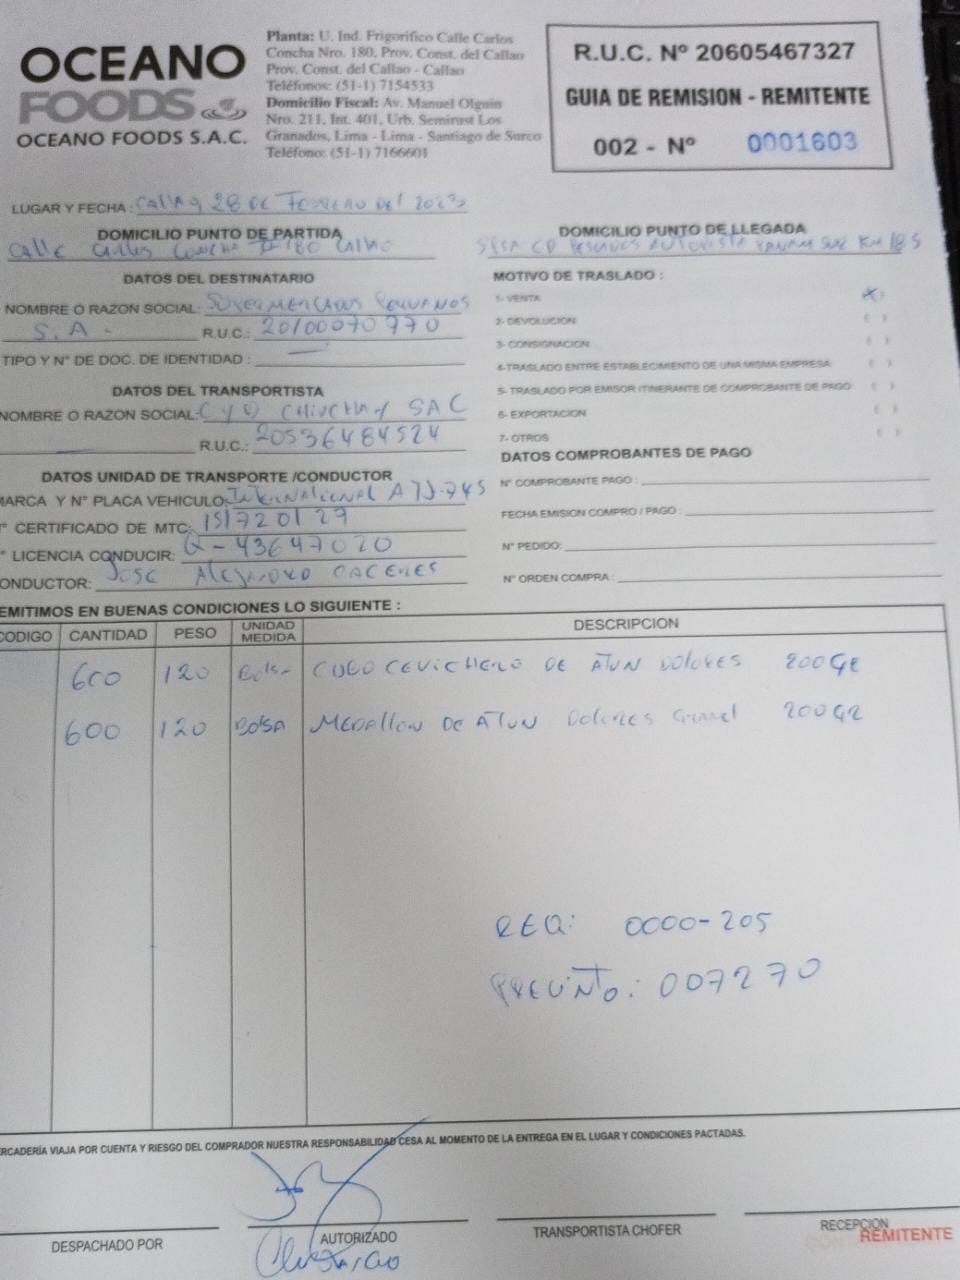 OCEANO
FOODS
OCEANO FOODS S.A.C.
Planta: U. Ind. Frigorifico Calle Carlos
Concha Nro. 180, Prov. Const. del Callao
Prov. Const. del Callao - Callao
Teléfonos: (51-1) 7154533
Domicilio Fiscal: Av. Manuel Olguin
Nro. 211, Int. 401, Urb. Semirust Los
Granados, Lima - Lima - Santiago de Surco
Teléfono: (51-1) 7166601
R.U.C. Nº 20605467327
GUIA DE REMISION - REMITENTE
002 - Nº 0001603
LUGAR Y FECHA: Callao 28 DE FEBRERO DEl 2023
DOMICILIO PUNTO DE PARTIDA
Calle Carlos CONCHA Nº 180 Callao
DOMICILIO PUNTO DE LLEGADA
SPSA CD PESCADOS AUTOPISTA PANAM SUR KM 18.5
DATOS DEL DESTINATARIO
NOMBRE O RAZON SOCIAL: SUPERMERCADOS PERUANOS
S.A. R.U.C.: 20100070970
TIPO Y Nº DE DOC. DE IDENTIDAD : —
DATOS DEL TRANSPORTISTA
NOMBRE O RAZON SOCIAL: C Y O CHIUCHAY SAC
R.U.C.: 20536484524
DATOS UNIDAD DE TRANSPORTE /CONDUCTOR
MARCA Y Nº PLACA VEHICULO: INTERNATIONAL ATJ-745
º CERTIFICADO DE MTC: 151720127
º LICENCIA CONDUCIR: Q-43647020
ONDUCTOR: JOSE Alejandro CACERES
MOTIVO DE TRASLADO :
1- VENTA (X)
2- DEVOLUCION ( )
3- CONSIGNACION ( )
4-TRASLADO ENTRE ESTABLECIMIENTO DE UNA MISMA EMPRESA ( )
5- TRASLADO POR EMISOR ITINERANTE DE COMPROBANTE DE PAGO ( )
6- EXPORTACION ( )
7- OTROS ( )
DATOS COMPROBANTES DE PAGO
Nº COMPROBANTE PAGO :
FECHA EMISION COMPRO / PAGO :
Nº PEDIDO:
Nº ORDEN COMPRA :
EMITIMOS EN BUENAS CONDICIONES LO SIGUIENTE :
CODIGO CANTIDAD PESO UNIDAD MEDIDA DESCRIPCION
600 120 Bolsa CUBO CEVICHERO DE ATUN DOLORES 200GR
600 120 BOLSA MEDALLON DE ATUN DOLORES Granel 200GR
REQ: 0000-205
PRECINTO: 007270
ERCADERÍA VIAJA POR CUENTA Y RIESGO DEL COMPRADOR NUESTRA RESPONSABILIDAD CESA AL MOMENTO DE LA ENTREGA EN EL LUGAR Y CONDICIONES PACTADAS.
DESPACHADO POR
AUTORIZADO
TRANSPORTISTA CHOFER
RECEPCION
REMITENTE